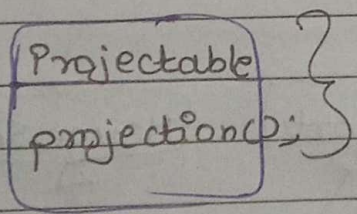 Projectable
projection();